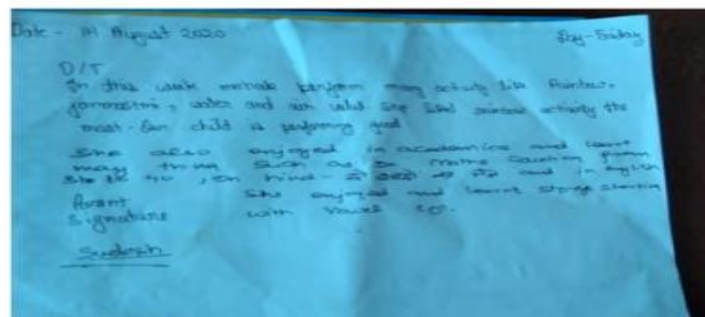 Date - 14 August 2020 Day - Friday
D/T
In this week mehak perform many activity like Rainbow,
janmastmi, water and air valid. She liked rainbow activity the
most. Our child is performing good
She also enjoyed in academics and learnt
many thing such as in maths counting from
to 40, in hindi - से and in english
Parent She enjoyed and learnt starting
Signature with vowel
Sudesh